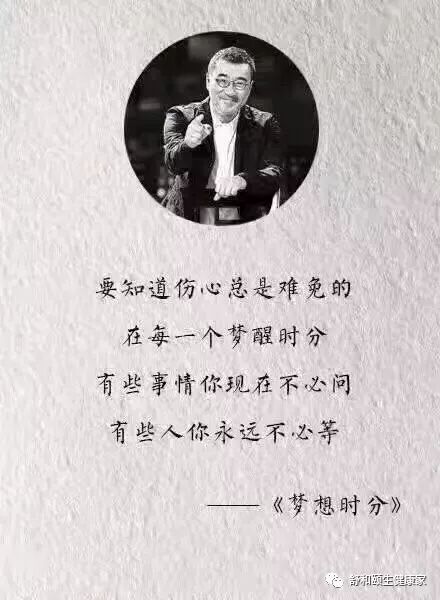 要知道伤心总是难免的
在每一个梦醒时分
有些事情你现在不必问
有些人你永远不必等
——《梦想时分》
舒和颐生健康家